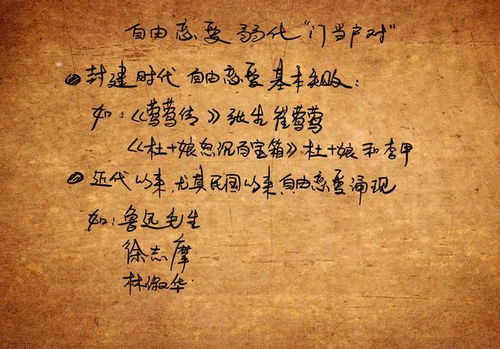 自由恋爱 弱化“门当户对”
①封建时代 自由恋爱 基本失败：
如：《莺莺传》张生 崔莺莺
《杜十娘怒沉百宝箱》杜十娘 和 李甲
②近代以来 尤其民国以来 自由恋爱涌现
如：鲁迅先生
徐志摩
林淑华